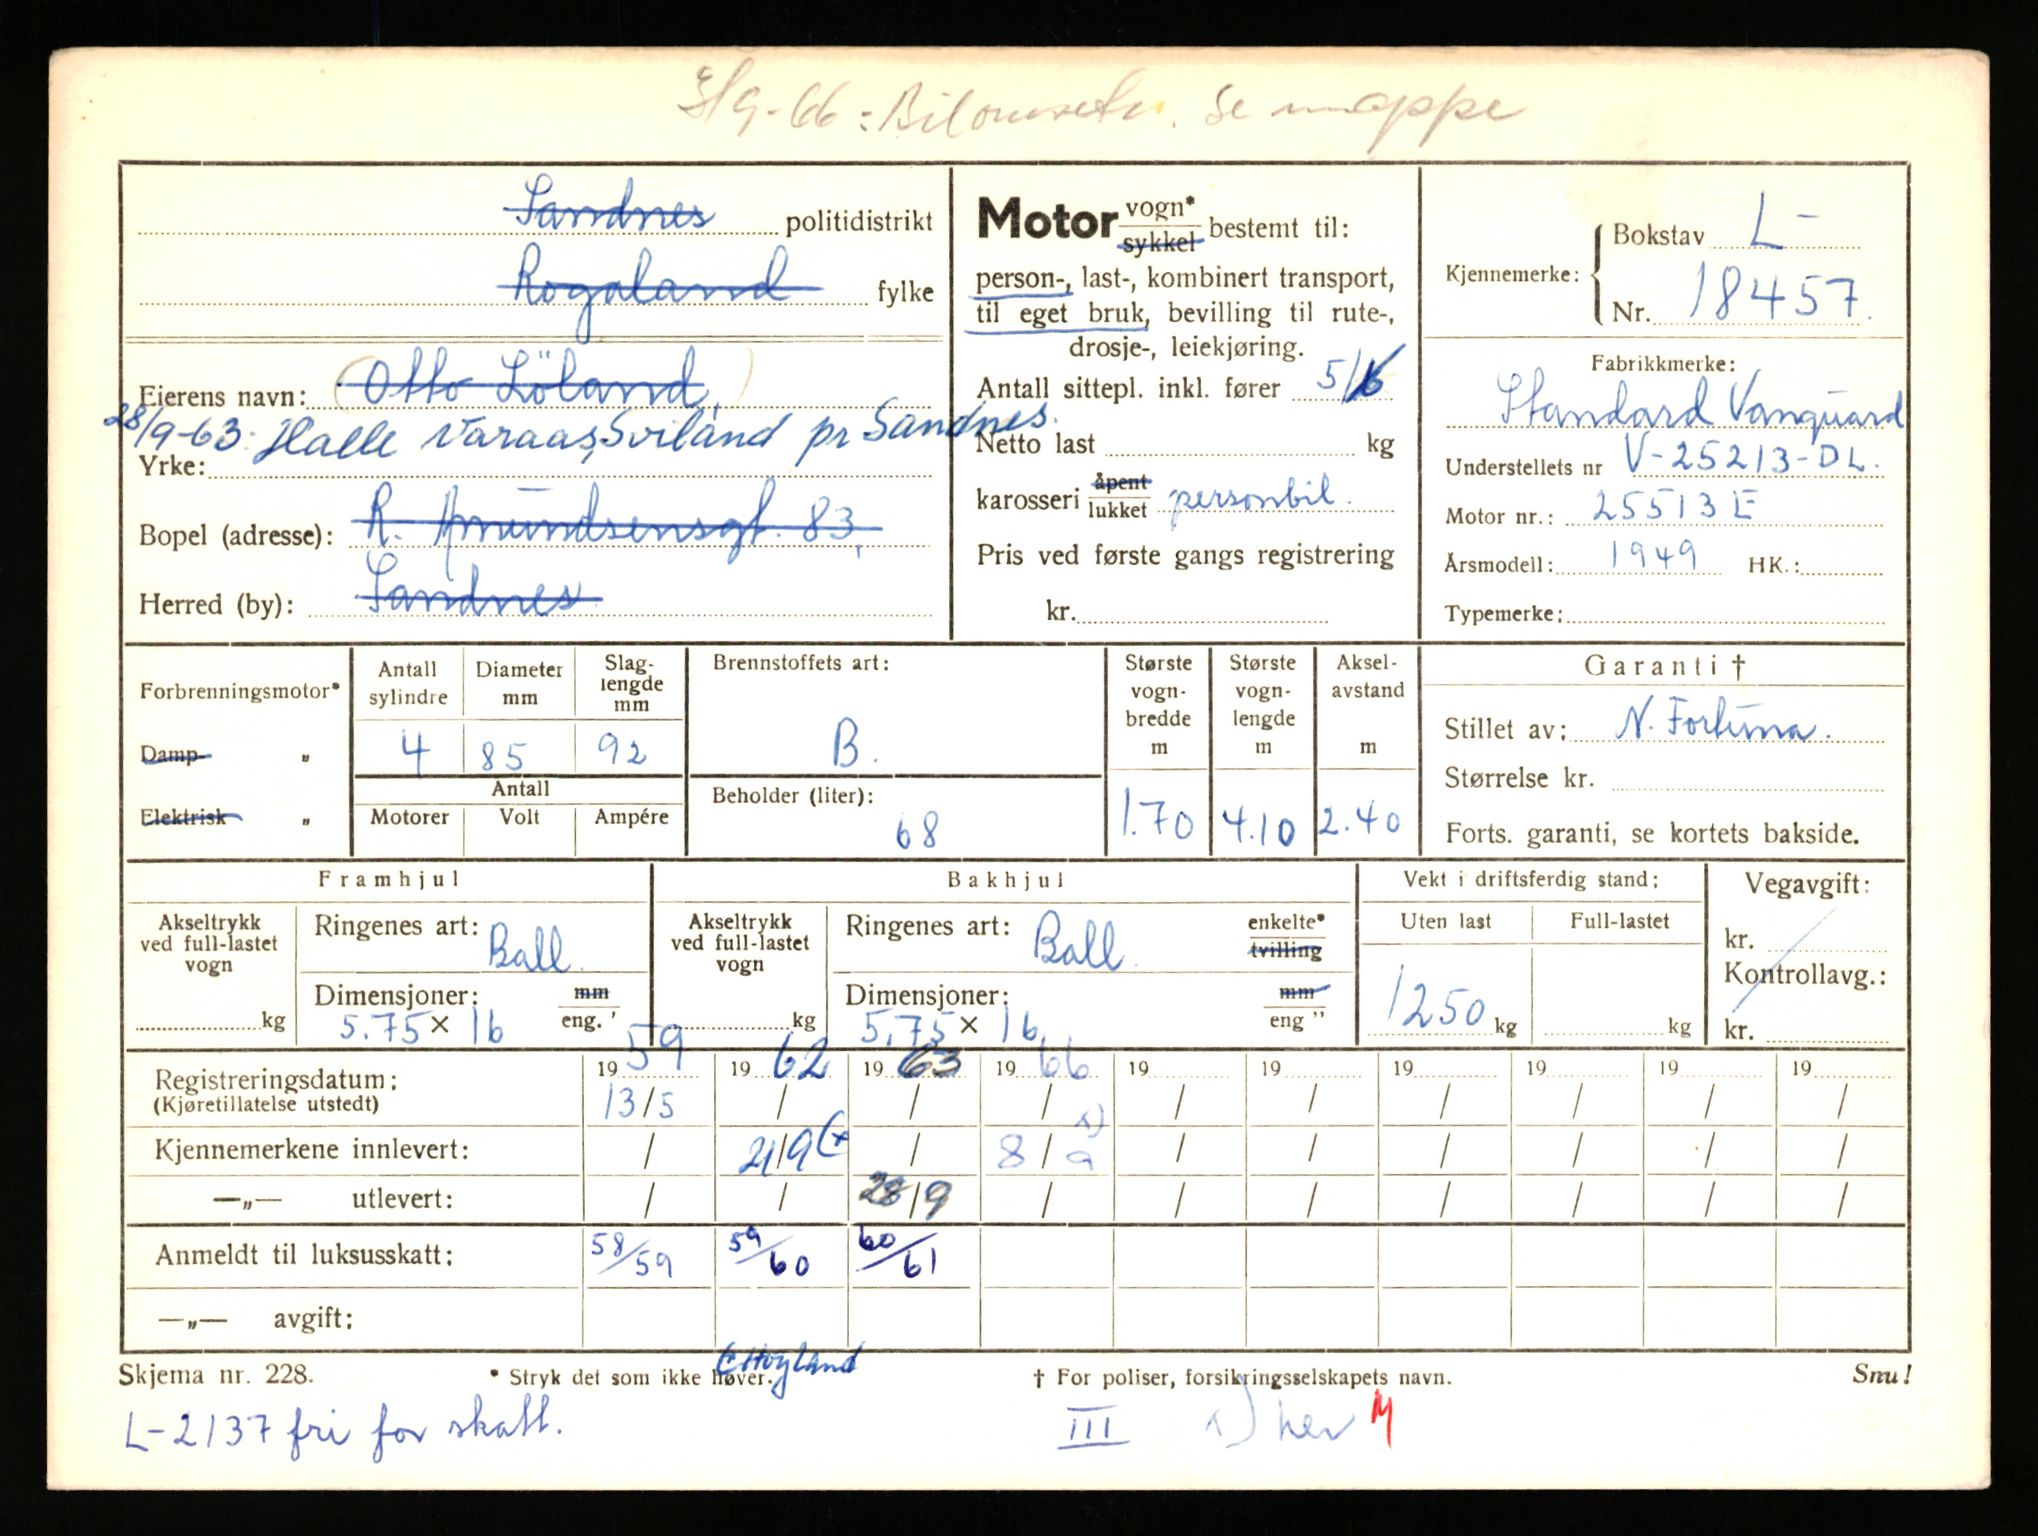 9-66: Bilomsetn. Se mappe
Sandnes politidistrikt
Rogaland fylke
Eierens navn: (Otto Löland,)
28/9-63: Halle Varaas, Sviland pr Sandnes.
Yrke:
Bopel (adresse): R. Amundsensgt. 83,
Herred (by): Sandnes
Motor vogn* sykkel bestemt til:
person-, last-, kombinert transport,
til eget bruk, bevilling til rute-,
drosje-, leiekjøring.
Antall sittepl. inkl. fører 5/6
Netto last kg
karosseri åpent lukket personbil.
Pris ved første gangs registrering
kr.
Kjennemerke: Bokstav L-
Nr. 18457.
Fabrikkmerke:
Standard Vanguard
Understellets nr V-25213-DL.
Motor nr.: 25513 E
Årsmodell: 1949 HK.:
Typemerke:
Forbrenningsmotor*
Damp- „
Elektrisk „
Antall sylindre Diameter mm Slag-lengde mm
4 85 92
Antall
Motorer Volt Ampére
Brennstoffets art:
B.
Beholder (liter):
68
Største vogn-bredde m Største vogn-lengde m Aksel-avstand m
1.70 4.10 2.40
Garanti †
Stillet av: N. Fortuna.
Størrelse kr.
Forts. garanti, se kortets bakside.
Framhjul
Akseltrykk ved full-lastet vogn
kg
Ringenes art: Ball
Dimensjoner: mm eng. '
5.75 × 16
Bakhjul
Akseltrykk ved full-lastet vogn
kg
Ringenes art: Ball enkelte* tvilling
Dimensjoner: mm eng "
5,75 × 16
Vekt i driftsferdig stand:
Uten last Full-lastet
1250 kg kg
Vegavgift:
kr.
Kontrollavg.:
kr.
1959 1962 1963 1966 19 19 19 19 19 19
Registreringsdatum: 13/5 / / / / / / / / /
(Kjøretillatelse utstedt)
Kjennemerkene innlevert: / 21/9 (x / 8/9 x) / / / / / /
—„— utlevert: / / 28/9 / / / / / / /
Anmeldt til luksusskatt: 58/59 59/60 60/61
—„— avgift:
Skjema nr. 228. * Stryk det som ikke høver. † For poliser, forsikringsselskapets navn. Snu!
(x Høyland
L-2137 fri for skatt. III x) her M